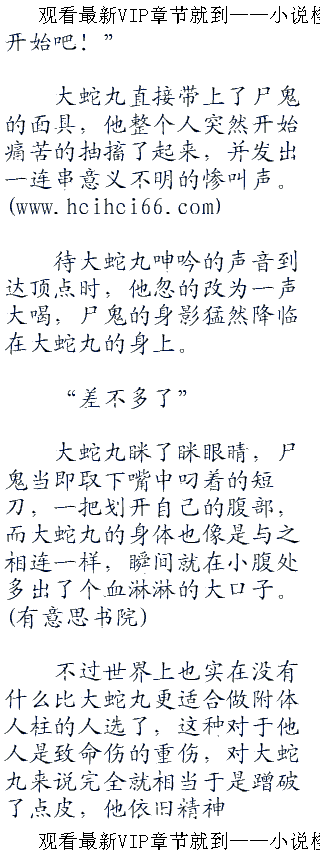 观看最新VIP章节就到——小说
开始吧！”
大蛇丸直接带上了尸鬼
的面具，他整个人突然开始
痛苦的抽搐了起来，并发出
一连串意义不明的惨叫声。
(www.hcihci66.com)
待大蛇丸呻吟的声音到
达顶点时，他忽的改为一声
大喝，尸鬼的身影猛然降临
在大蛇丸的身上。
“差不多了”
大蛇丸眯了眯眼睛，尸
鬼当即取下嘴中叼着的短
刀，一把划开自己的腹部，
而大蛇丸的身体也像是与之
相连一样，瞬间就在小腹处
多出了个血淋淋的大口子。
(有意思书院)
不过世界上也实在没有
什么比大蛇丸更适合做附体
人柱的人选了，这种对于他
人是致命伤的重伤，对大蛇
丸来说完全就相当于是蹭破
了点皮，他依旧精神
观看最新VIP章节就到——小说